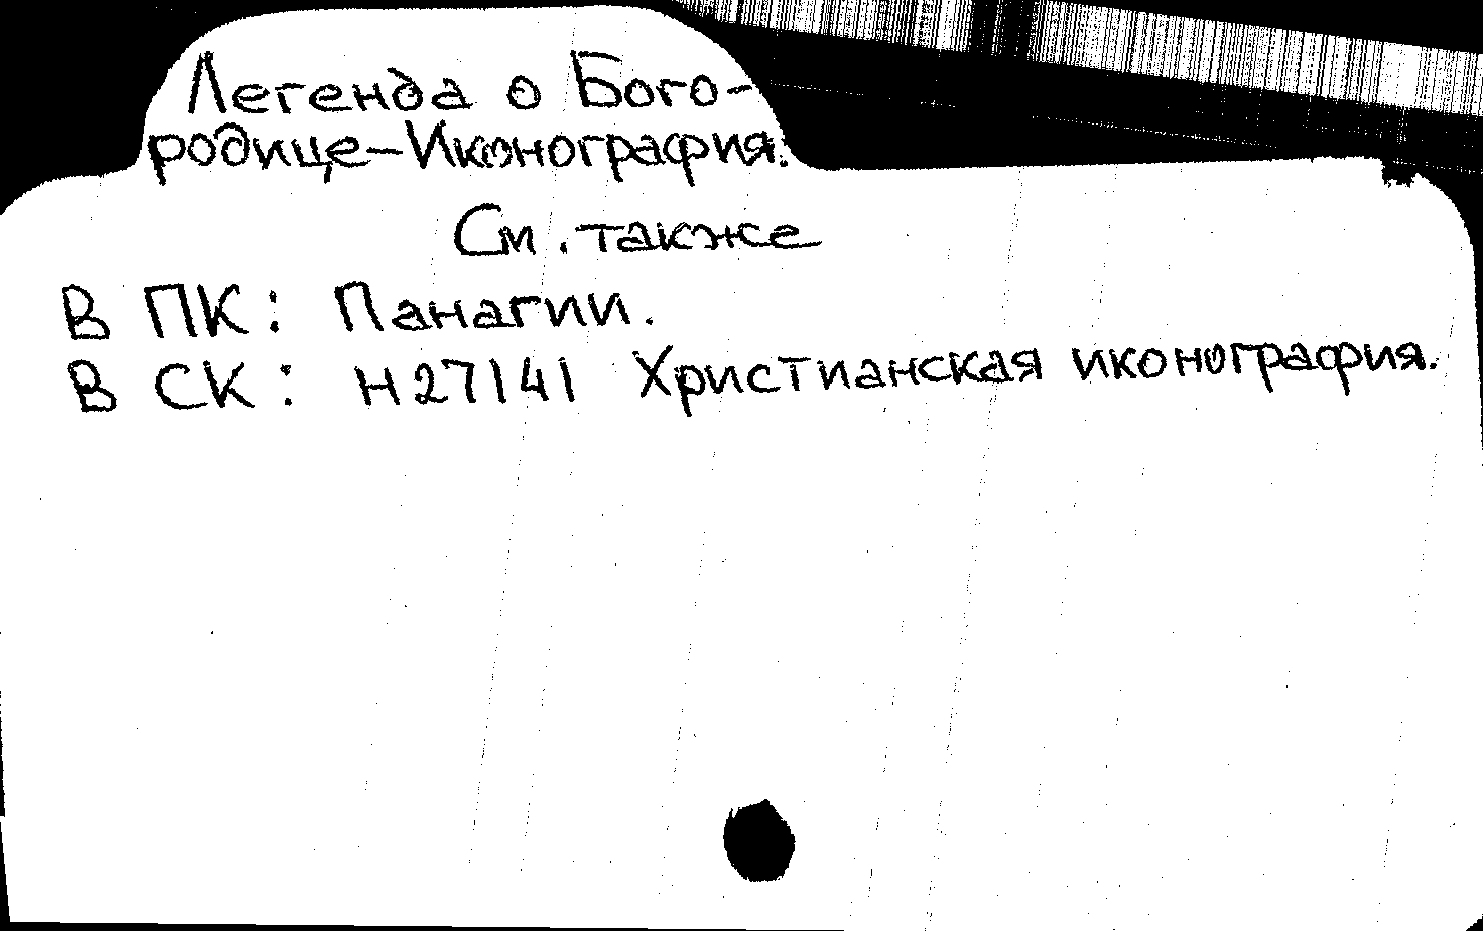 Легенда о Бого-
родице-Иконография.
См. также
В ПК: Панагии.
В СК: Н27141 Христианская иконография.